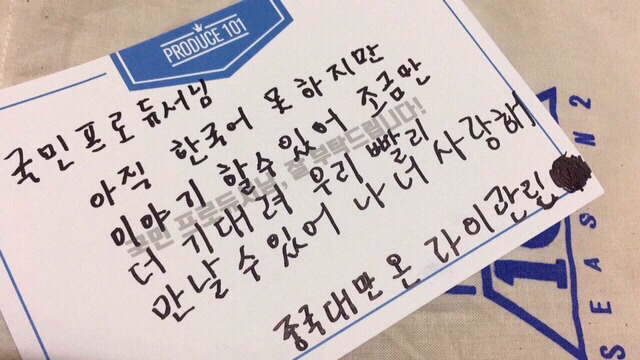 PRODUCE 101
국민 프로듀서님
아직 한국어 못 하지만
이야기 할수있어 조금만
더 기대려 우리 빨리
만날 수 있어 나 너 사랑해
중국대만 온 라이관린
국민 프로듀서님, 잘 부탁드립니다!
10
SEASON 2